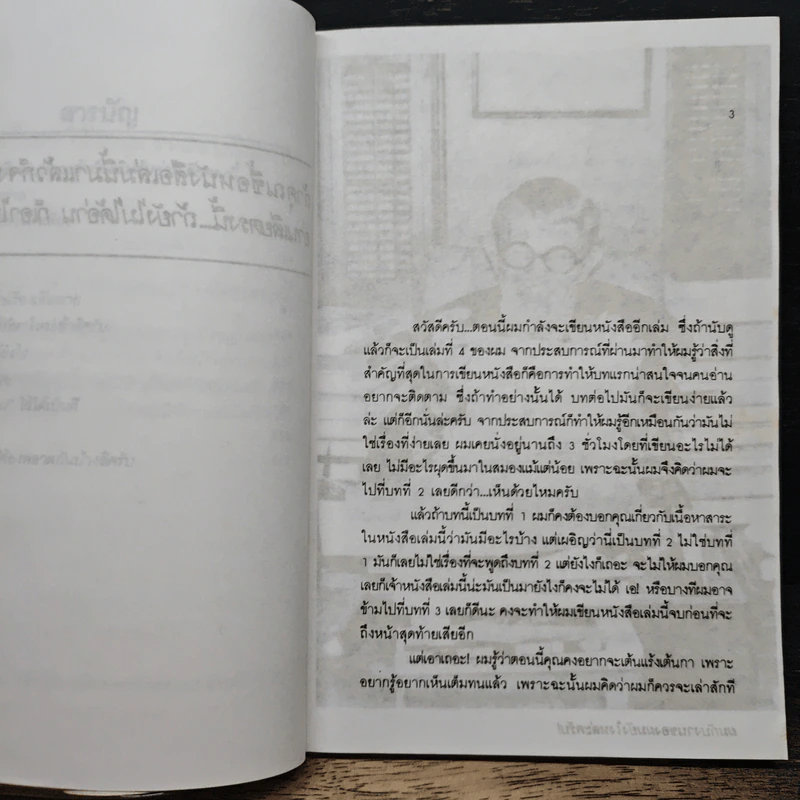 3
สวัสดีครับ...ตอนนี้ผมกำลังจะเขียนหนังสืออีกเล่ม ซึ่งถ้านับดู
แล้วก็จะเป็นเล่มที่ 4 ของผม จากประสบการณ์ที่ผ่านมาทำให้ผมรู้ว่าสิ่งที่
สำคัญที่สุดในการเขียนหนังสือก็คือการทำให้บทแรกน่าสนใจจนคนอ่าน
อยากจะติดตาม ซึ่งถ้าทำอย่างนั้นได้ บทต่อไปมันก็จะเขียนง่ายแล้ว
ล่ะ แต่ก็อีกนั่นล่ะครับ จากประสบการณ์ก็ทำให้ผมรู้อีกเหมือนกันว่ามันไม่
ใช่เรื่องที่ง่ายเลย ผมเคยนั่งอยู่นานถึง 3 ชั่วโมงโดยที่เขียนอะไรไม่ได้
เลย ไม่มีอะไรผุดขึ้นมาในสมองแม้แต่น้อย เพราะฉะนั้นผมจึงคิดว่าผมจะ
ไปที่บทที่ 2 เลยดีกว่า...เห็นด้วยไหมครับ
แล้วถ้าบทนี้เป็นบทที่ 1 ผมก็คงต้องบอกคุณเกี่ยวกับเนื้อหาสาระ
ในหนังสือเล่มนี้ว่ามันมีอะไรบ้าง แต่เผอิญว่านี่เป็นบทที่ 2 ไม่ใช่บทที่
1 มันก็เลยไม่ใช่เรื่องที่จะพูดถึงบทที่ 2 แต่ยังไงก็เถอะ จะไม่ให้ผมบอกคุณ
เลยก็เจ้าหนังสือเล่มนี้น่ะมันเป็นมายังไงก็คงจะไม่ได้ เอ! หรือบางทีผมอาจ
ข้ามไปที่บทที่ 3 เลยก็ดีนะ คงจะทำให้ผมเขียนหนังสือเล่มนี้จบก่อนที่จะ
ถึงหน้าสุดท้ายเสียอีก
แต่เอาเถอะ! ผมรู้ว่าตอนนี้คุณคงอยากจะเต้นแร้งเต้นกา เพราะ
อยากรู้อยากเห็นเต็มทนแล้ว เพราะฉะนั้นผมคิดว่าผมก็ควรจะเล่าสักที